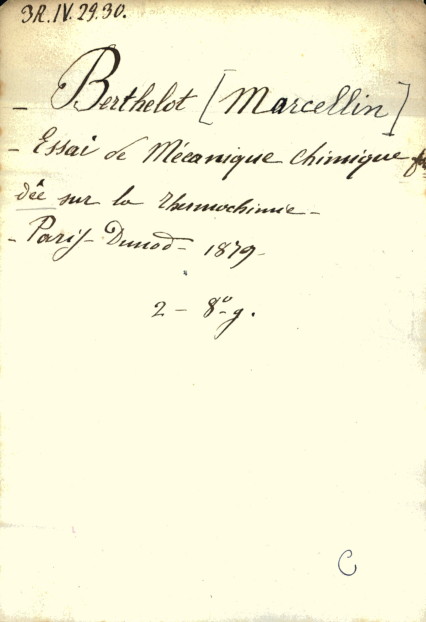 3R.IV.29.30.
- Berthelot [Marcellin]
- Essai de Mécanique chimique fon
dée sur la thermochimie -
- Paris - Dunod - 1879 -
2 - 8º g.
C